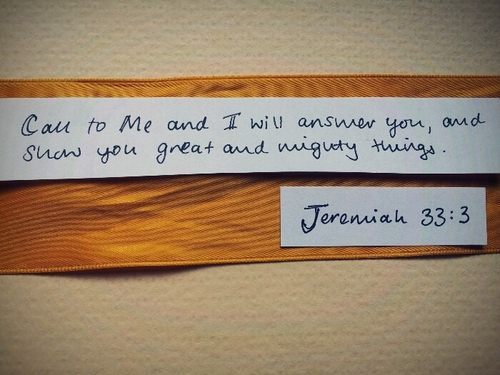 Call to Me and I will answer you, and
show you great and mighty things.
Jeremiah 33:3